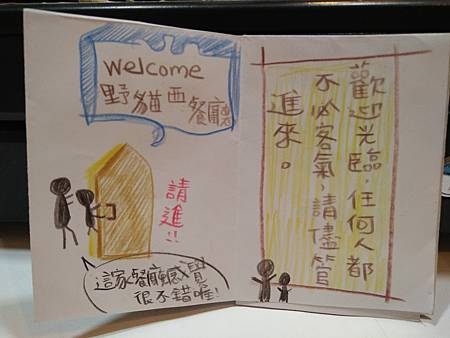 welcome
野貓西餐廳
請進!!
這家餐廳感覺
很不錯喔!
歡迎光臨,任何人都
不必客氣,請儘管
進來。